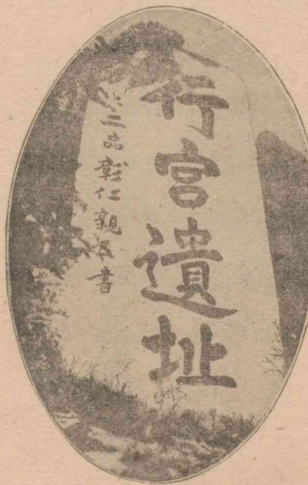 行宮遺址
二品彰仁親王書